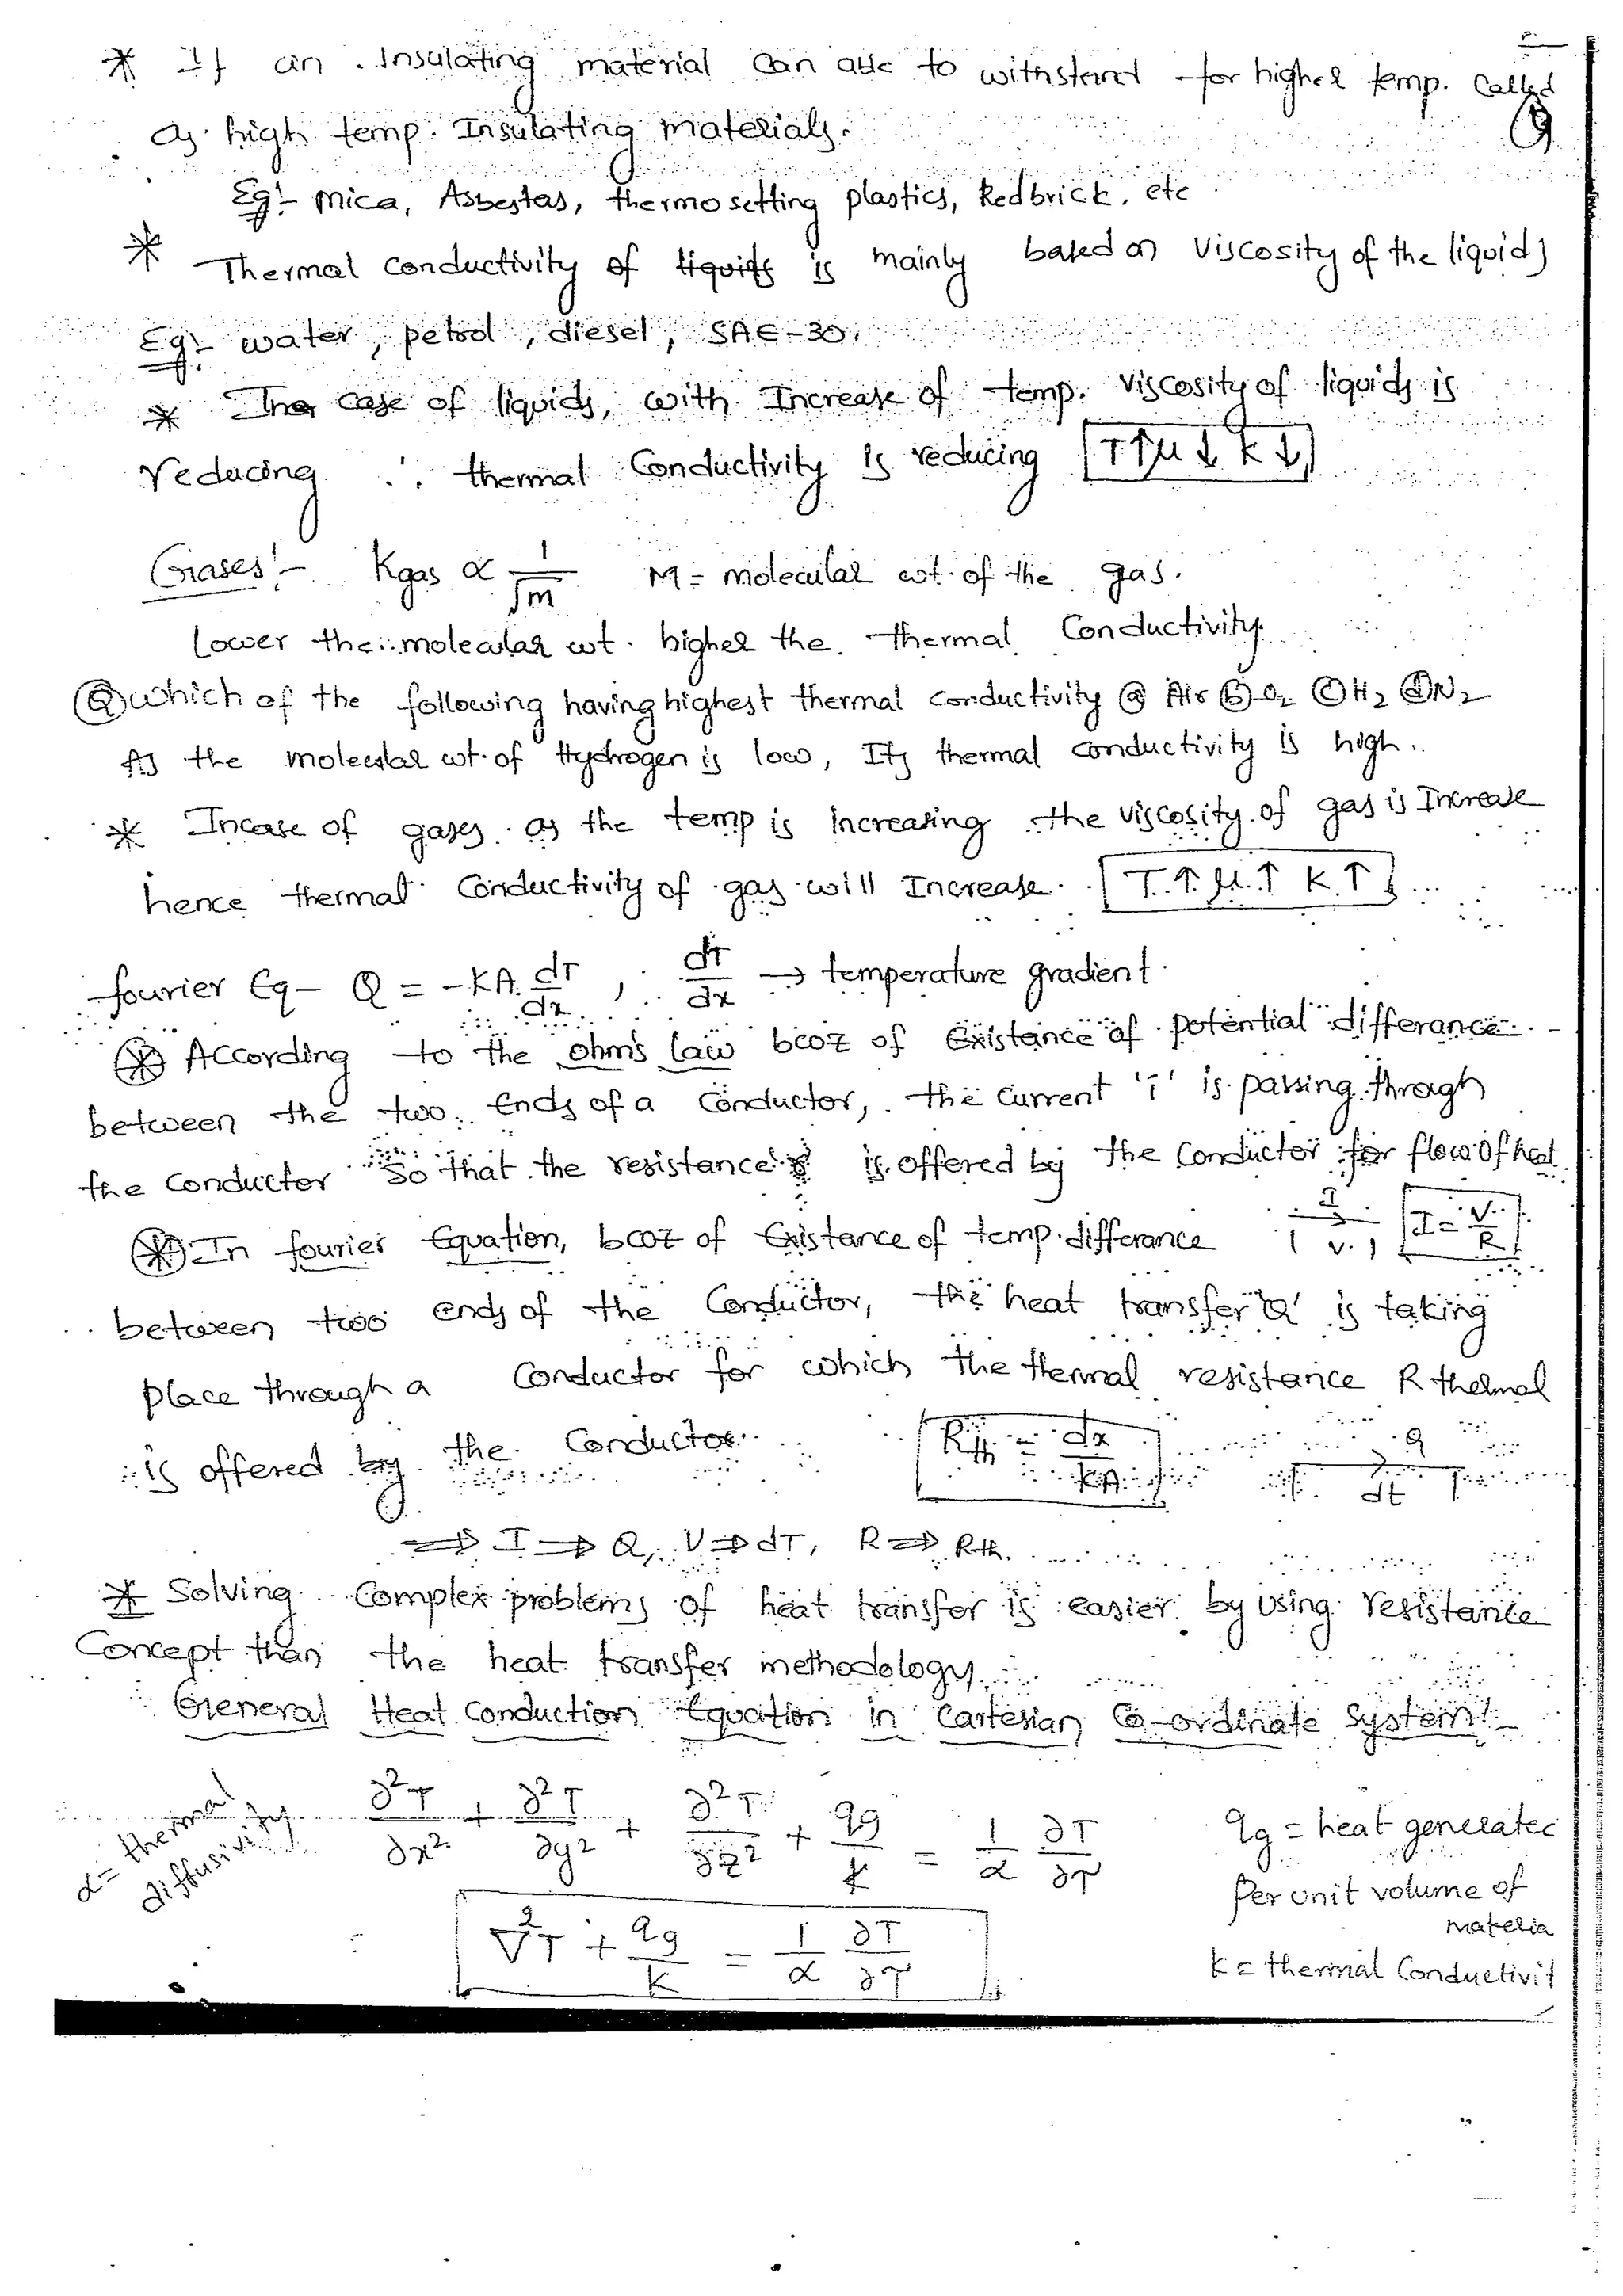 * If an Insulating material can able to withstand for higher temp. called
as high temp. Insulating materials.
9
Eg:- mica, Asbestas, thermosetting plastics, Redbrick, etc
* Thermal conductivity of liquids is mainly based on viscosity of the liquids
Eg:- water, petrol, diesel, SAE-30.
* The case of liquids, with Increase of temp. viscosity of liquids is
reducing ∴ thermal Conductivity is reducing T↑μ↓ k↓
Gases:- Kgas ∝ 1/√m M = molecular wt. of the gas.
Lower the molecular wt. higher the thermal Conductivity.
Q which of the following having highest thermal conductivity ⓐ Air ⓑ O₂ ⓒ H₂ ⓓ N₂
As the molecular wt. of Hydrogen is low, Its thermal conductivity is high.
* Incase of gases as the temp is increasing the viscosity of gas is Increase
hence thermal Conductivity of gas will Increase. T↑ μ↑ K↑
fourier Eq- Q = -KA dT/dx , dT/dx → temperature gradient.
* According to the ohm's law bcoz of Existance of potential differance
between the two Ends of a conductor, the current 'i' is passing through
the conductor so that the resistance is offered by the conductor for flow of heat
I
v
I = V/R
* In fourier Equation, bcoz of Existance of temp. differance
between two ends of the Conductor, the heat transfer 'Q' is taking
place through a conductor for which the thermal resistance R thermal
is offered by the Conductor. Rth = dx/kA
Q
dt
⇒ I ⇒ Q, V ⇒ dT, R ⇒ Rth.
* Solving Complex problems of heat transfer is easier by using resistance
Concept than the heat transfer methodology.
General Heat Conduction Equation in Cartesian Co-ordinate System:-
α = thermal diffusivity
∂²T/∂x² + ∂²T/∂y² + ∂²T/∂z² + qg/k = 1/α ∂T/∂τ
qg = heat generatec
Per unit volume of
materia
∇²T + qg/k = 1/α ∂T/∂τ
k = thermal Conductivit